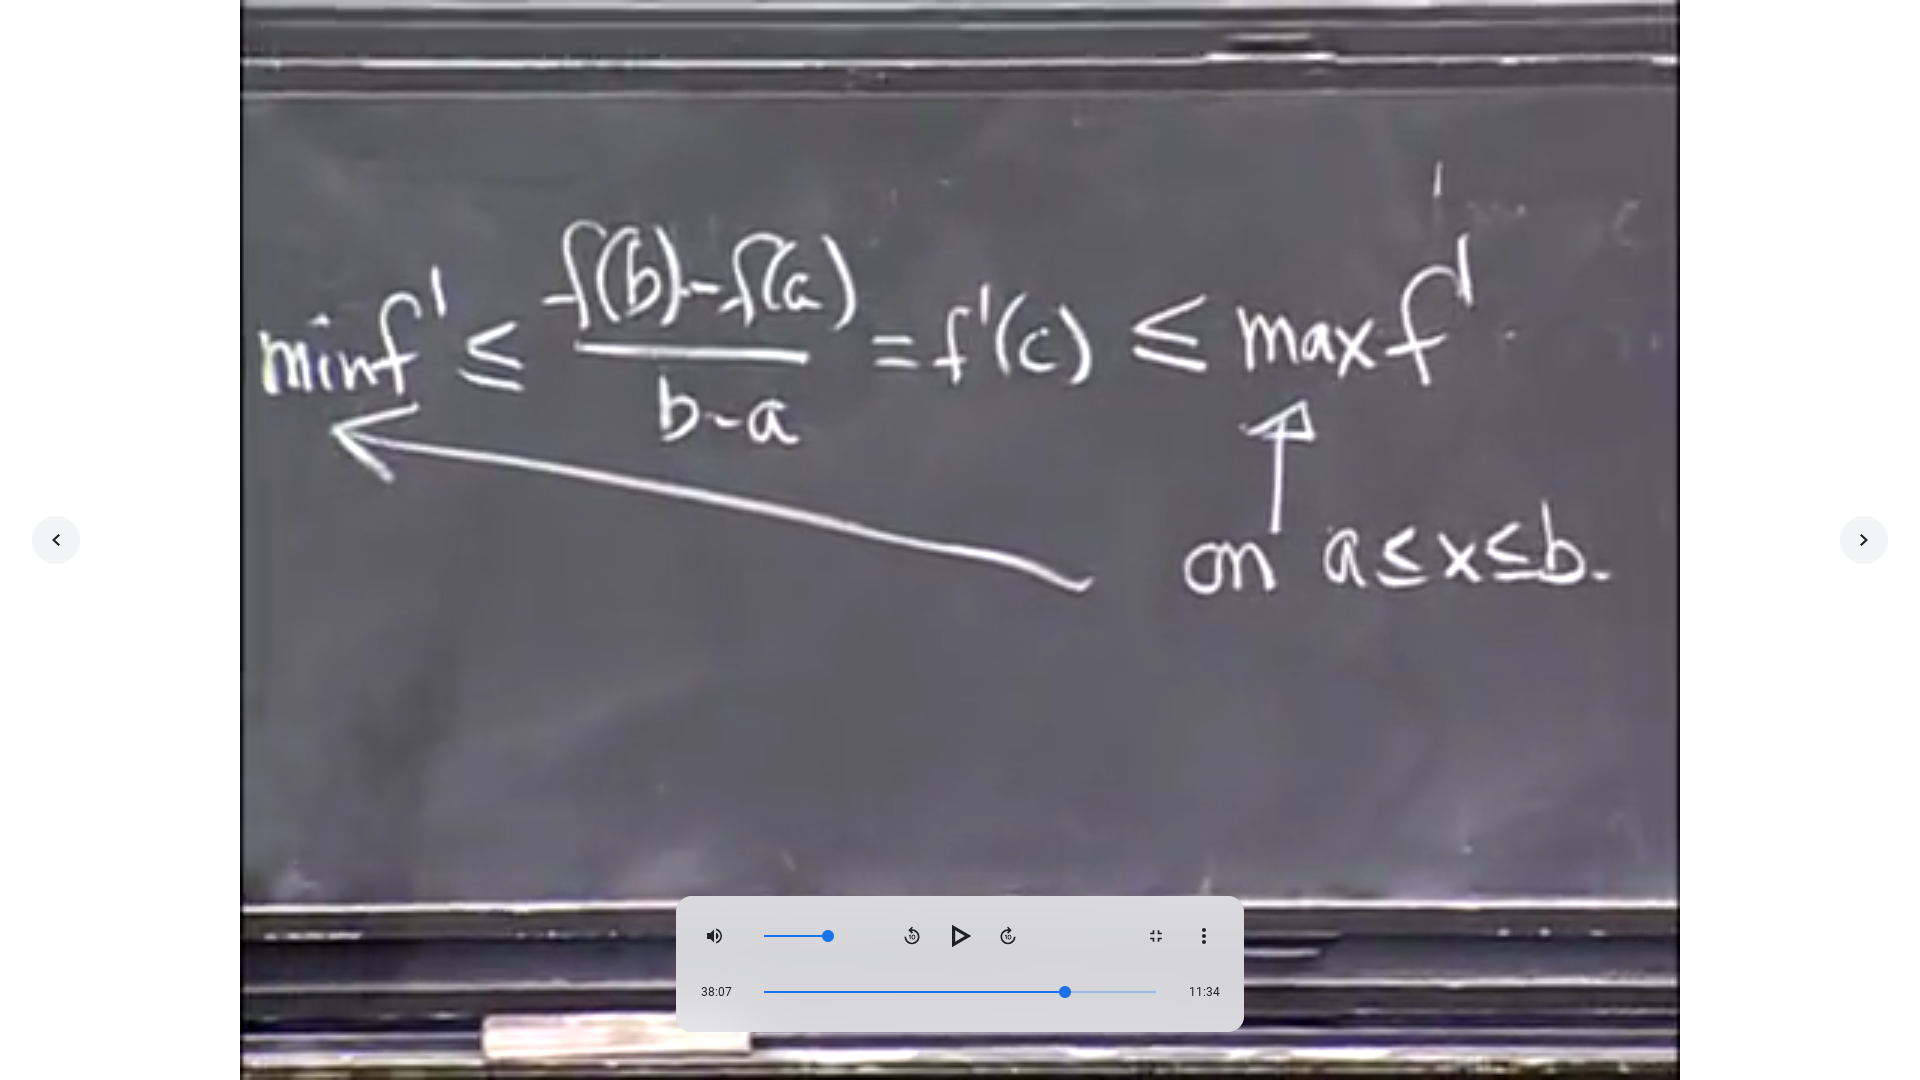 min f' ≤ f(b)-f(a) / b-a = f'(c) ≤ max f'
on a≤x≤b.
10 10
38:07 11:34